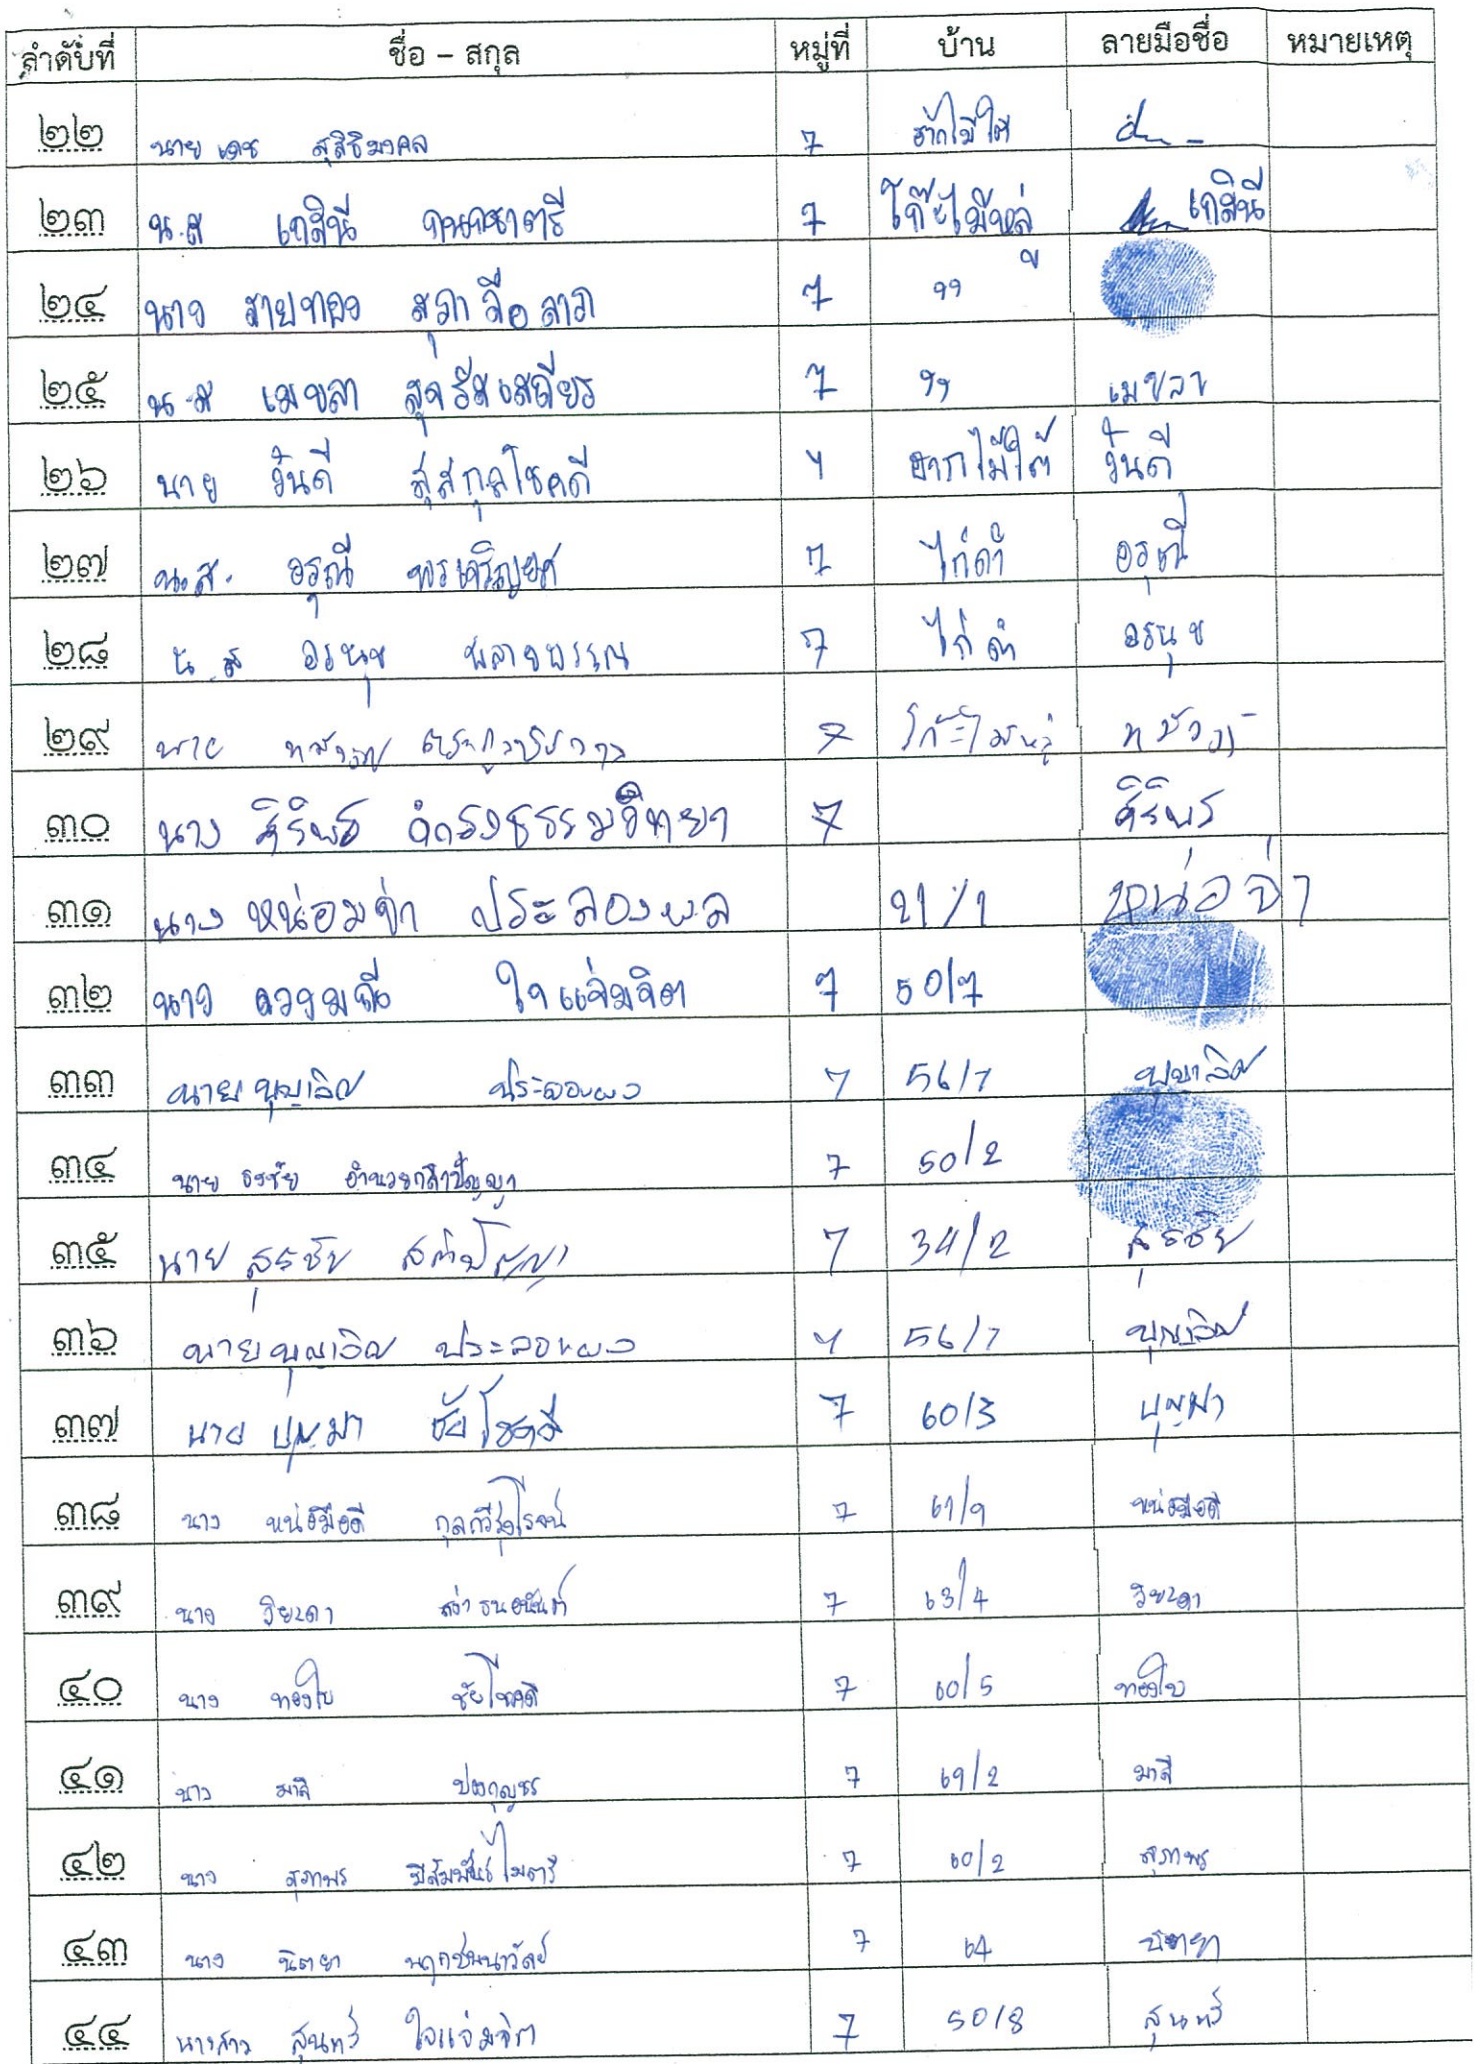 ลำดับที่ ชื่อ - สกุล หมู่ที่ บ้าน ลายมือชื่อ หมายเหตุ
๒๒ นาย เดช สุสิธิมงคล 7
๒๓ น.ส เกสินี กนกชาตรี 7 โก๊ะไม้หลู่ เกสินี
๒๔ นาง สายทอง 7 ๆๆ
๒๕ น.ส เมขลา 7 ๆๆ เมขลา
๒๖ นาย วันดี สุสกุลโชคดี 7 ฮากไม้ใต้ วันดี
๒๗ น.ส. อรุณี พรเจริญยศ 7 ไก่ดำ อรุณี
๒๘ น.ส อรนุช พลายพรรณ 7 ไก่ดำ อรนุช
๒๙ นาย 7 โก๊ะไม้หลู่
๓๐ นาง ศิริพร ดำรงธรรมวิทยา 7 ศิริพร
๓๑ นาง หน่อมจ่า ประลองผล 21/1 หน่อจ่า
๓๒ นาง ใจแจ่มจิต 7 50/7
๓๓ นาย บุญเลิศ ประลองผล 7 56/7 บุญเลิศ
๓๔ นาย ธงชัย 7 50/2
๓๕ นาย สุรชัย 7 34/2 สุรชัย
๓๖ นาย บุญเลิศ ประลองผล 7 56/7 บุญเลิศ
๓๗ นาย บุญมา ชัยโชคดี 7 60/3 บุญมา
๓๘ นาง หน่อมือดี กุลทวีรุ่งโรจน์ 7 61/9 หน่อมือดี
๓๙ นาง วิยะดา 7 63/4 วิยะดา
๔๐ นาง ทองใบ ชัยโชคดี 7 60/5 ทองใบ
๔๑ นาง มาลี 7 69/2 มาลี
๔๒ นาง สุภาพร มีสัมพันธ์ไมตรี 7 60/2 สุภาพร
๔๓ นาง นิตยา 7 64 นิตยา
๔๔ นางสาว สุนทรี ใจแจ่มจิต 7 50/8 สุนทรี